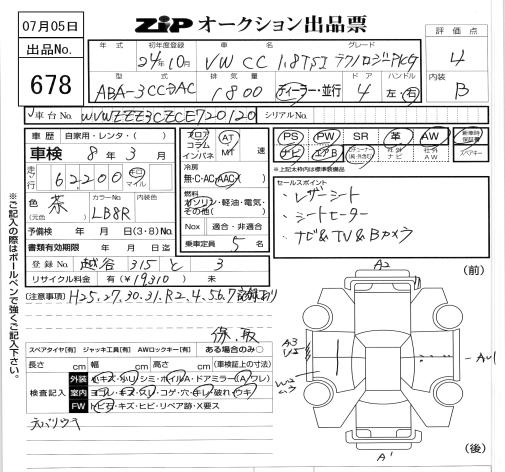 07月05日
ZIP オークション出品票
出品No.
678
年式 初年度登録 車名 グレード
24年10月 VW CC 1.8TSI テクノロジーPKG
型式 排気量 ドア ハンドル
ABA-3CCDAC 1800 ディーラー・並行 4 左・右
評価点
4
内装
B
車台No. WVWZZZ3CZCE720120 シリアルNo.
車歴 自家用・レンタ・( )
車検 8年3月
走行 62200 キロ マイル
色 (元色) 茶 カラーNo. LB8R 内装色
予備検 年 月 日(3・8)No.
書類有効期限 年 月 日迄
登録No. 越谷 315 と 3
リサイクル料金 有(¥19,310) 未
フロア コラム インパネ AT MT 速
冷房
無・C・AC・AAC
燃料
ガソリン・軽油・電気・その他( )
Nox 適合・非適合
乗車定員 5 名
PS PW SR 革 AW 新車時保証書
ナビ エアB ディーラー(純・外含む) 社外ナビ 社外AW スペアキー
※上記太枠内は標準装備品
セールスポイント
・レザーシート
・シートヒーター
・ナビ&TV&Bカメラ
(注意事項) H25.27.30.31.R2.4.5.6.7記録あり
保.取
スペアタイヤ[有] ジャッキ工具[有] AWロックキー[有] ある場合のみ○
長さ cm 幅 cm 高さ cm (車検証上の寸法)
検査記入 外装 小キズ・小リ シミ・ホイルA・ドアミラー(A/ワレ)
室内 ヨゴレ・キズ・スレ・コゲ・穴・キレ・破れ・ウキ
FW トビ石・キズ・ヒビ・リペア跡・X要ス
天バリウキ
※ご記入の際はボールペンで強くご記入下さい。
A2
(前)
A3
U2
W2
AU1
A1
(後)